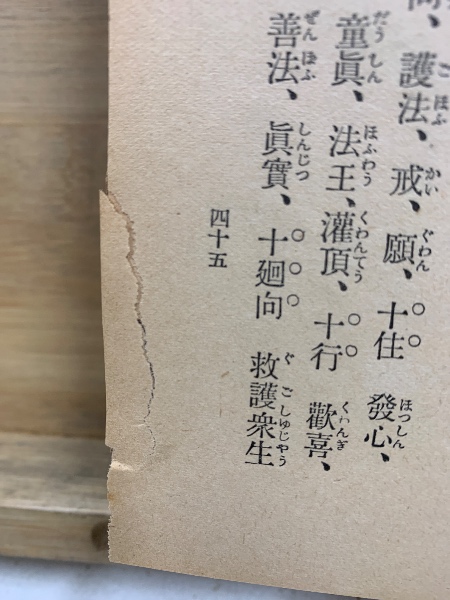 護法、戒、願、十住 發心、
童眞、法王、灌頂、十行 歡喜、
善法、眞實、十廻向 救護衆生
四十五